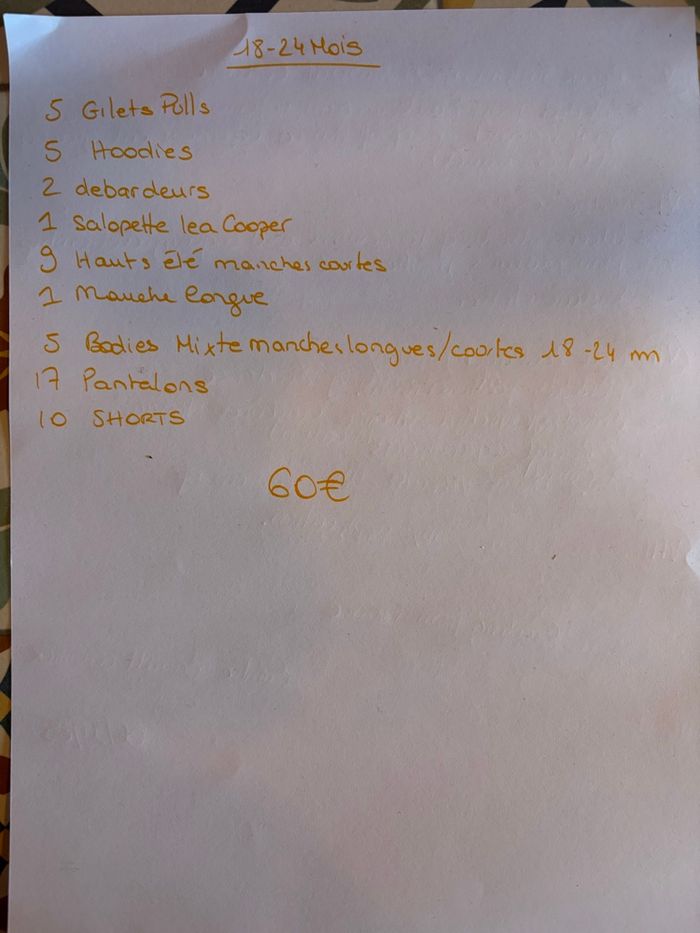 18-24 Mois
5 Gilets Pulls
5 Hoodies
2 debardeurs
1 Salopette lea Cooper
9 Hauts été manches courtes
1 Manche longue
5 Bodies Mixte manches longues/courtes 18-24 m
17 Pantalons
10 SHORTS
60€